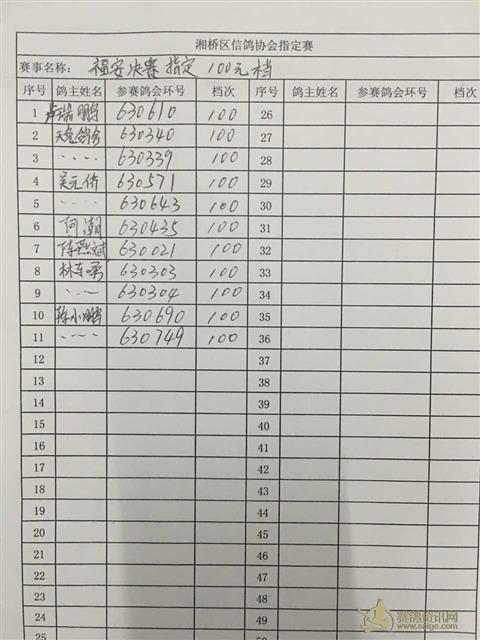 湘桥区信鸽协会指定赛
赛事名称: 福安决赛 指定 100元档
序号 鸽主姓名 参赛鸽会环号 档次 序号 鸽主姓名 参赛鸽会环号 档次
1 卢瑞鹏 630610 100 26
2 630340 100 27
3 、、、、 630339 100 28
4 吴元侨 630571 100 29
5 、、、、 630643 100 30
6 何潮 630435 100 31
7 陈燕斌 630021 100 32
8 630303 100 33
9 、、、 630304 100 34
10 陈小鹏 630690 100 35
11 、、、、 630749 100 36
12 37
13 38
14 39
15 40
16 41
17 42
18 43
19 44
20 45
21 46
22 47
23 48
24 49
25
赛鸽资讯网
www.saige.com